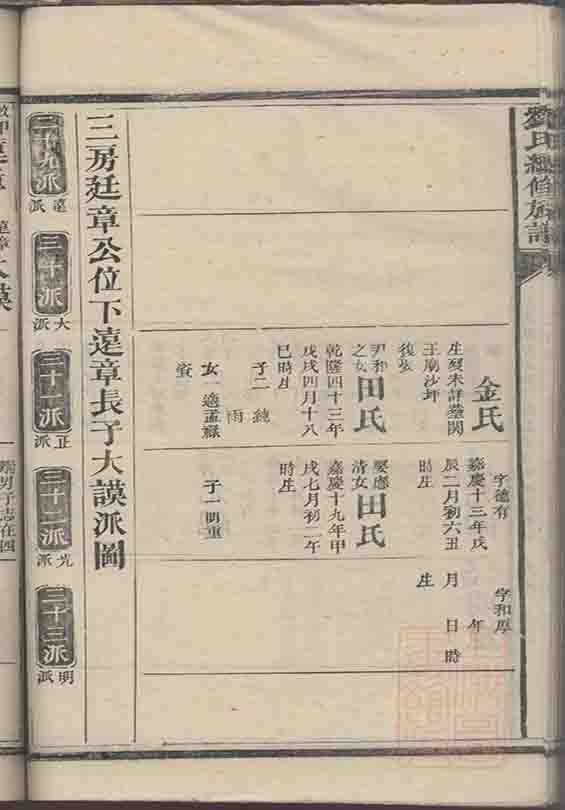 劉氏續修族譜
金氏
生歿未詳葬関
王廟沙坪
後娶
尹和
之女田氏
乾隆四十三年
戊戌四月十八
巳時生
子二 純
雨
女一適孟
字德有
嘉慶十三年戊
辰二月初六丑
時生
娶應
清女田氏
嘉慶十九年甲
戌七月初二午
時生
子一明重
字和厚
年
月 日 時
生
三房廷章公位下遠章長子大謨派圖
二十九派
遠派
三十派
大派
三十一派
正派
三十二派
光派
三十三派
明派
男子志在四